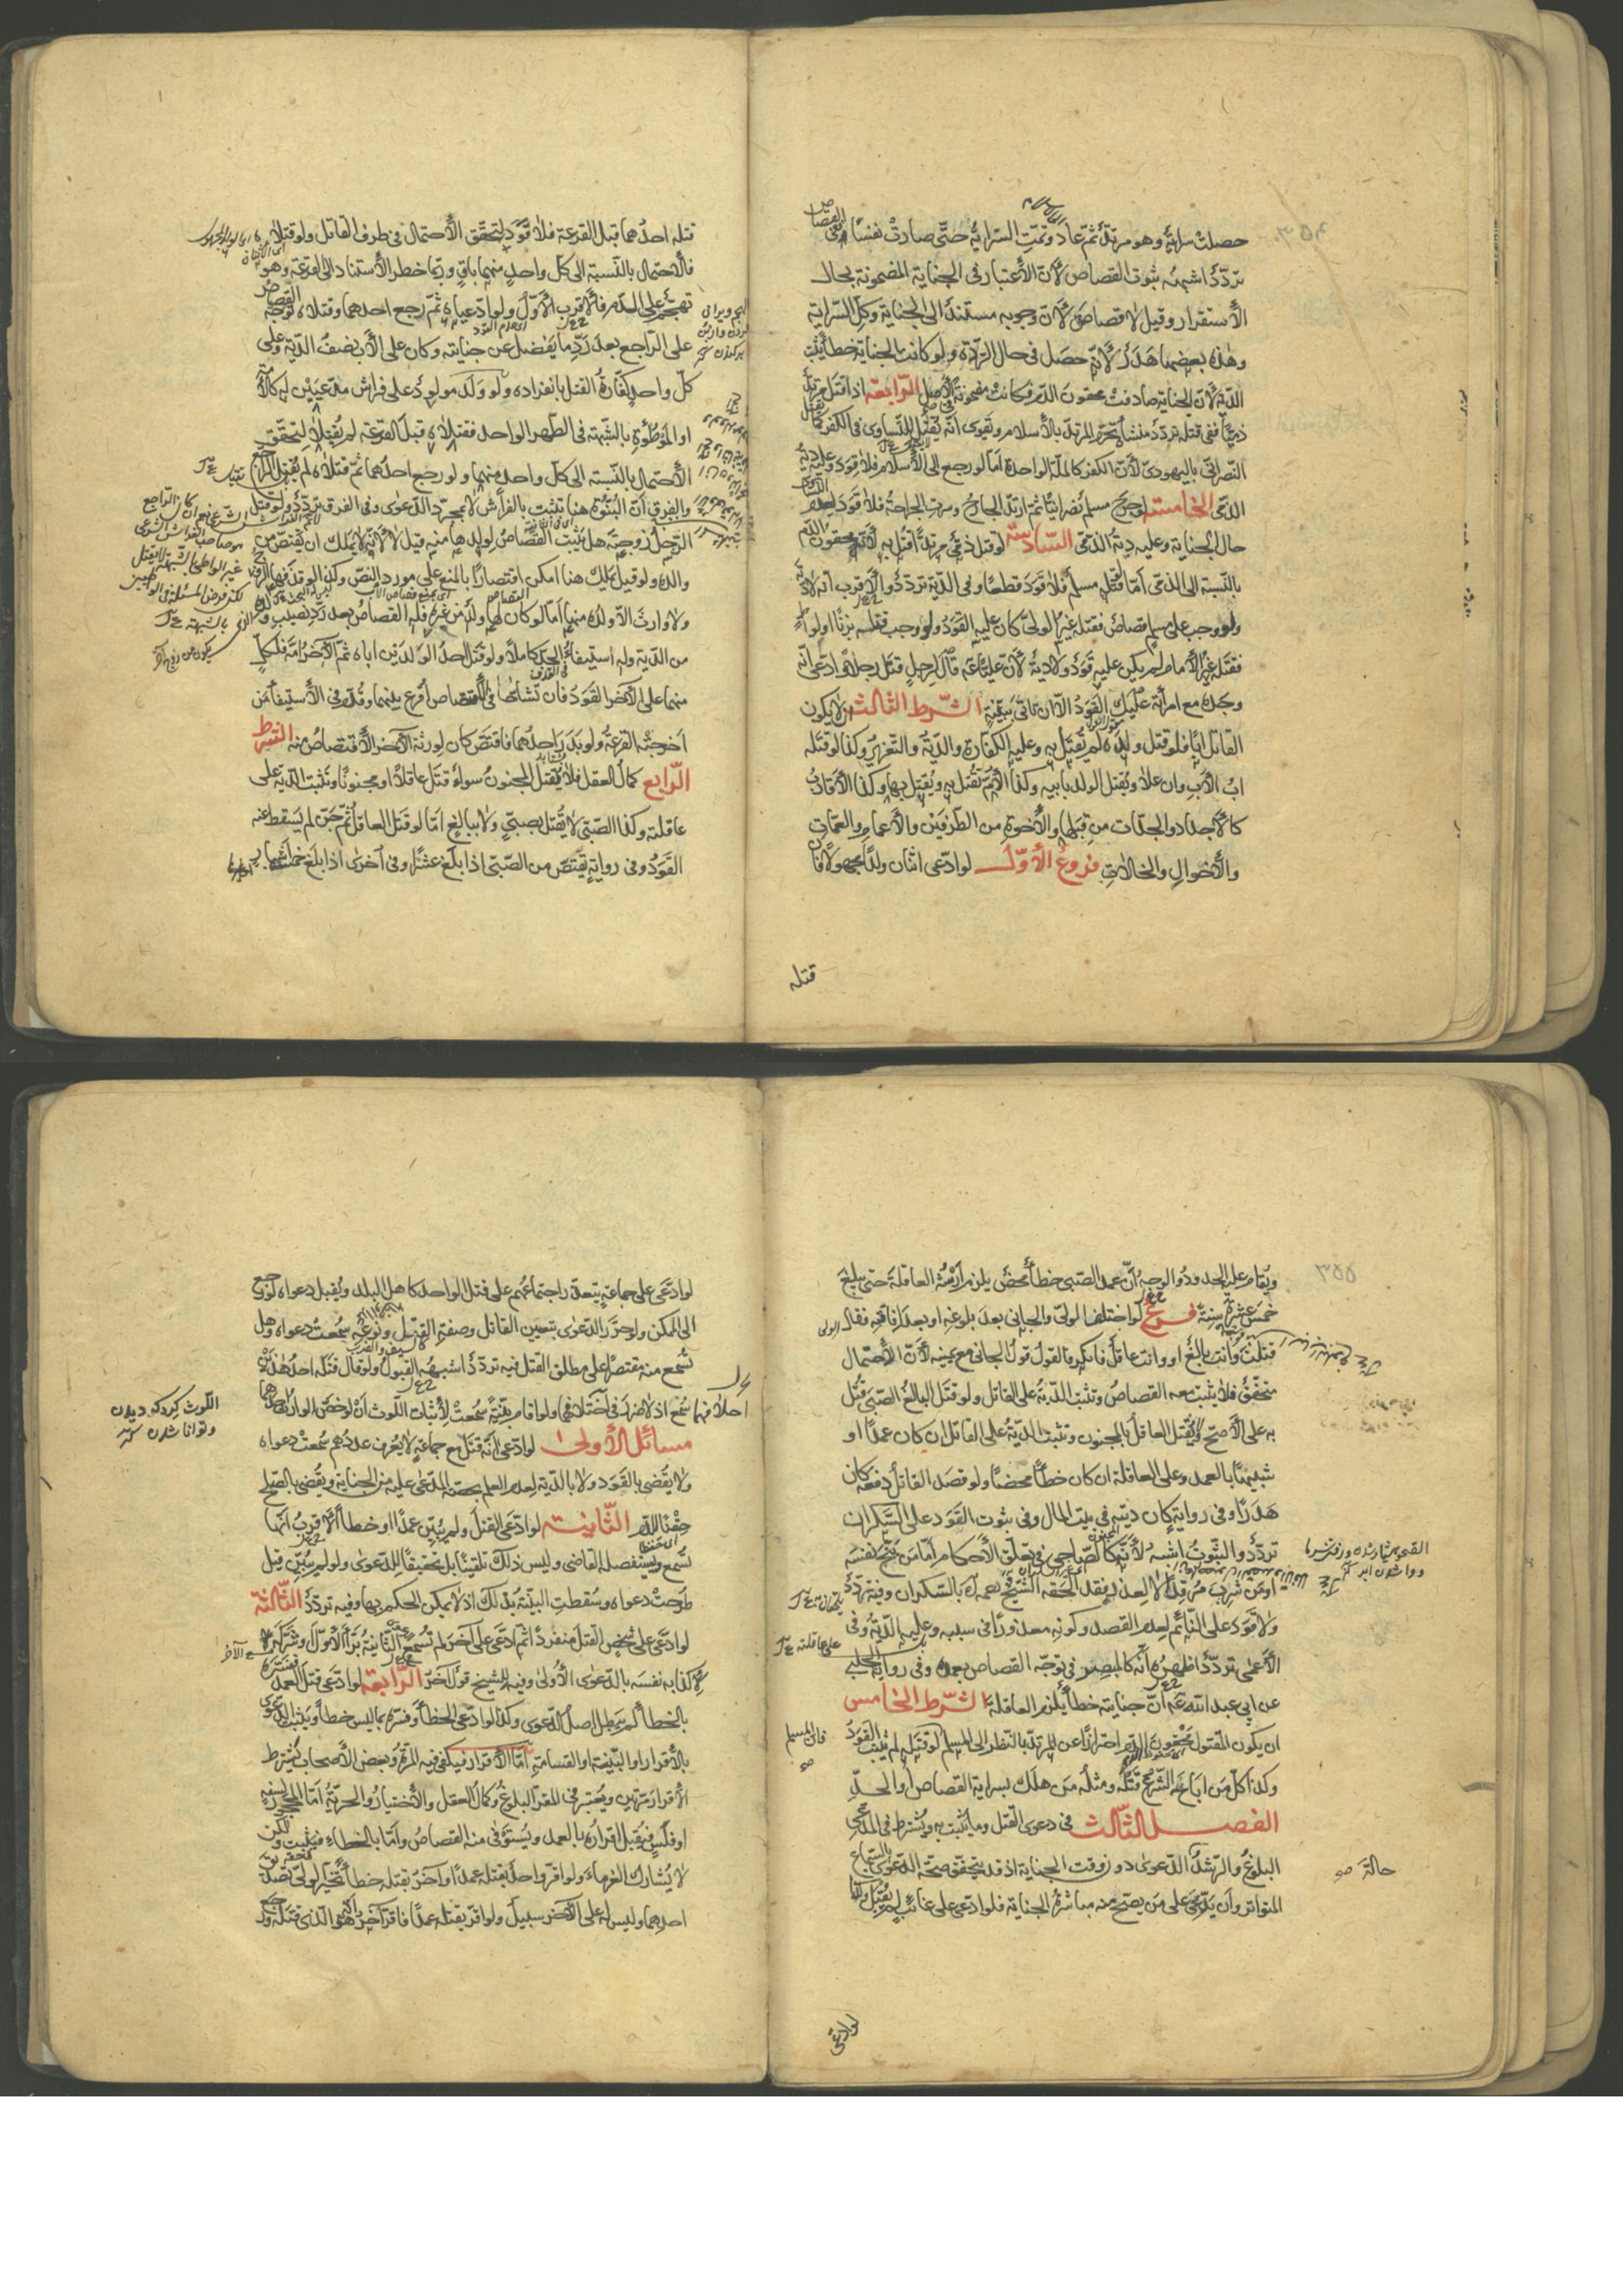 حصلت سراية وهو مرتد ثم عاد وتمت السراية حتى صارت نفسا ففى القصاص
تردد اشبهه ثبوت القصاص لأن الأعتبار فى الجناية المضمونة بحال
الأستقرار وقيل لا قصاص لأن وجوبه مستند الى الجناية وكل السراية
وهذه بعضها هدر لأنه حصل فى حال الردة ولو كانت الجناية خطأ تثبت
الدية لأن الجناية صادفت محقون الدم وكانت مضمونة فى الأصل الرابعة اذا قتل مرتد
ذميا ففى قتله تردد منشأه تحرم المرتد بالأسلام ويقوى انه يقتل للتساوى فى الكفر كما يقتل
النصرانى باليهودى لأن الكفر كالملة الواحدة اما لو رجع الى الأسلام فلا قود وعليه دية
الذمى الخامسة لو جرح مسلم نصرانيا ثم ارتد الجارح وسرت الجراحة فلا قود لعدم التساوى
حال الجناية وعليه دية الذمى السادسة لو قتل ذمى مرتدا قتل به لأنه محقون الدم
بالنسبة الى الذمى اما لو قتله مسلم فلا قود قطعا وفى الدية تردد والأقرب انه لا دية
ولو وجب على مسلم قصاص فقتله غير الولى كان عليه القود ولو وجب قتله بزنا او لواط
فقتله غير الأمام لم يكن عليه قود ولا دية لأن عليا عم قال لرجل قتل رجلا وادعى انه
وجده مع امرأته عليك القود الا ان تأتى ببينة الشرط الثالث ان لا يكون
القاتل ابا فلو قتل ولده لم يقتل به وعليه الكفارة والدية والتعزير وكذا لو قتله
اب الأب وان علا ويقتل الولد بابيه وكذا الأم تقتل به ويقتل بها وكذا الأقارب
كالأجداد والجدات من قبلها والأخوة من الطرفين والأعمام والعمات
والأخوال والخالات فروع الأول لو ادعى اثنان ولدا مجهولا فان
قتله
قتله احدهما قبل القرعة فلا قود لتحقق الأحتمال فى طرف القاتل ولو قتلاه
فالأحتمال بالنسبة الى كل واحد منهما باق وربما خطر الأستناد الى القرعة وهو
تهجم على الدم فالأقرب الأول ولو ادعياه ثم رجع احدهما وقتلاه توجه القصاص
على الراجع بعد رد ما يفضل عن جنايته وكان على الأب نصف الدية وعلى
كل واحد كفارة القتل بانفراده ولو ولد مولود على فراش مدعيين له كالأمة
او الموطؤة بالشبهة فى الطهر الواحد فقتلاه قبل القرعة لم يقتلا لتحقق
الأحتمال بالنسبة الى كل واحد منهما ولو رجع احدهما ثم قتلاه لم يقتل الراجع
والفرق ان البنوة هنا تثبت بالفراش لا بمجرد الدعوى وفى الفرق تردد ولو قتل
الرجل زوجته هل يثبت القصاص لولدها منه قيل لا لأنه لا يملك ان يقتص من
والده ولو قيل يملك هنا امكن اقتصارا بالمنع على مورد النص وكذا لو قذفها الزوج
ولا وارث الا ولده منها اما لو كان لها ولد من غيره فله القصاص بعد رد نصيب ولده
من الدية وله استيفاء الحد كاملا ولو قتل احد الولدين اباه ثم الآخر امه فلكل
منهما على الآخر القود فان تشاحا فى الأقتصاص اقرع بينهما وقدم فى الأستيفاء من
اخرجته القرعة ولو بدر احدهما فاقتص كان لورثة الآخر الأقتصاص منه الشرط
الرابع كمال العقل فلا يقتل المجنون سواء قتل عاقلا او مجنونا وتثبت الدية على
عاقلته وكذا الصبى لا يقتل بصبى ولا ببالغ اما لو قتل العاقل ثم جن لم يسقط عنه
القود وفى رواية يقتص من الصبى اذا بلغ عشرا وفى اخرى اذا بلغ خمسة اشبار
ويقام عليه الحدود والوجه ان عمد الصبى خطأ محض يلزم ارشه العاقلة حتى يبلغ
خمس عشرة سنة فروع لو اختلف الولى والجانى بعد بلوغه او بعد افاقته فقال الولى
قتلت وانت بالغ او وانت عاقل فانكر فالقول قول الجانى مع يمينه لأن الأحتمال
متحقق فلا يثبت معه القصاص وتثبت الدية على القاتل ولو قتل البالغ الصبى قتل
به على الأصح ولا يقتل العاقل بالمجنون وتثبت الدية على القاتل ان كان عمدا او
شبيها بالعمد وعلى العاقلة ان كان خطأ محضا ولو قصد القاتل دفعه كان
هدرا وفى رواية كان ديته فى بيت المال وفى ثبوت القود على السكران
تردد والثبوت اشبه لأنه كالصاحى فى تعلق الأحكام اما من بنج نفسه
او من شرب مرقدا لا لعذر فقد الحقه الشيخ رحمه الله بالسكران وفيه تردد
ولا قود على النائم لعدم القصد وكونه معذورا فى سببه وعليه الدية وفى
الأعمى تردد اظهره انه كالمبصر فى توجه القصاص بعمده وفى رواية الحلبى
عن ابى عبد الله عم ان جنايته خطأ يلزم العاقلة الشرط الخامس
ان يكون المقتول محقون الدم احترازا عن المرتد بالنظر الى المسلم لو قتله لم يثبت القود
وكذا كل من اباح الشرع قتله ومثله من هلك بسراية القصاص او الحد
الفصل الثالث فى دعوى القتل وما يثبت به ويشترط فى المدعى
البلوغ والرشد حال الدعوى دون وقت الجناية اذ قد يتحقق صحة الدعوى بالسماع
المتواتر وان يدعى على من يصح منه مباشرة الجناية فلو ادعى على غائب لم يقبل وكذا
حالة صح
لو ادعى
لو ادعى على جماعة يتعذر اجتماعهم على قتل الواحد كاهل البلد ويقبل دعواه لو رجع
الى الممكن ولو حرر الدعوى بتعيين القاتل وصفة القتل ونوعه سمعت دعواه وهل
تسمع منه مقتصرا على مطلق القتل فيه تردد اشبهه القبول ولو قال قتله احد هذين
سمع اذ لا ضرر فى احلافهما ولو اقام بينة سمعت لأثبات اللوث ان لو خص الوارث احدهما
مسائل الأولى لو ادعى انه قتل مع جماعة لا يعرف عددهم سمعت دعواه
ولا يقضى بالقود ولا بالدية لعدم العلم بحصة المدعى عليه من الجناية ويقضى بالصلح
حقنا للدم الثانية لو ادعى القتل ولم يبين عمدا او خطأ الأقرب انها
تسمع ويستفصله القاضى وليس ذلك تلقينا بل تحقيقا للدعوى ولو لم يبين قيل
طرحت دعواه وسقطت البينة بذلك اذ لا يمكن الحكم بها وفيه تردد الثالثة
لو ادعى على شخص القتل منفردا ثم ادعى على آخر لم تسمع الثانية برأ الأول او شركه
لأكذابه نفسه بالدعوى الأولى وفيه للشيخ قول آخر الرابعة لو ادعى قتل العمد ففسره
بالخطأ لم يبطل اصل الدعوى وكذا لو ادعى الخطأ وفسره بما ليس خطأ ويثبت الدعوى
بالأقرار او البينة او القسامة اما الأقرار فيكفى فيه المرة وبعض الأصحاب يشترط
الأقرار مرتين ويعتبر فى المقر البلوغ وكمال العقل والأختيار والحرية اما المحجور لسفه
او فلس فيقبل اقراره بالعمد ويستوفى منه القصاص واما بالخطاء فيثبت ولكن
لا يشارك الغرماء ولو اقر واحد بقتله عمدا وآخر بقتله خطأ تخير الولى تصديق
احدهما وليس له على الآخر سبيل ولو اقر بقتله عمدا فاقر آخر انه هو الذى قتله ورجع
اللوث كرد كرديدن
وتوانا شدن